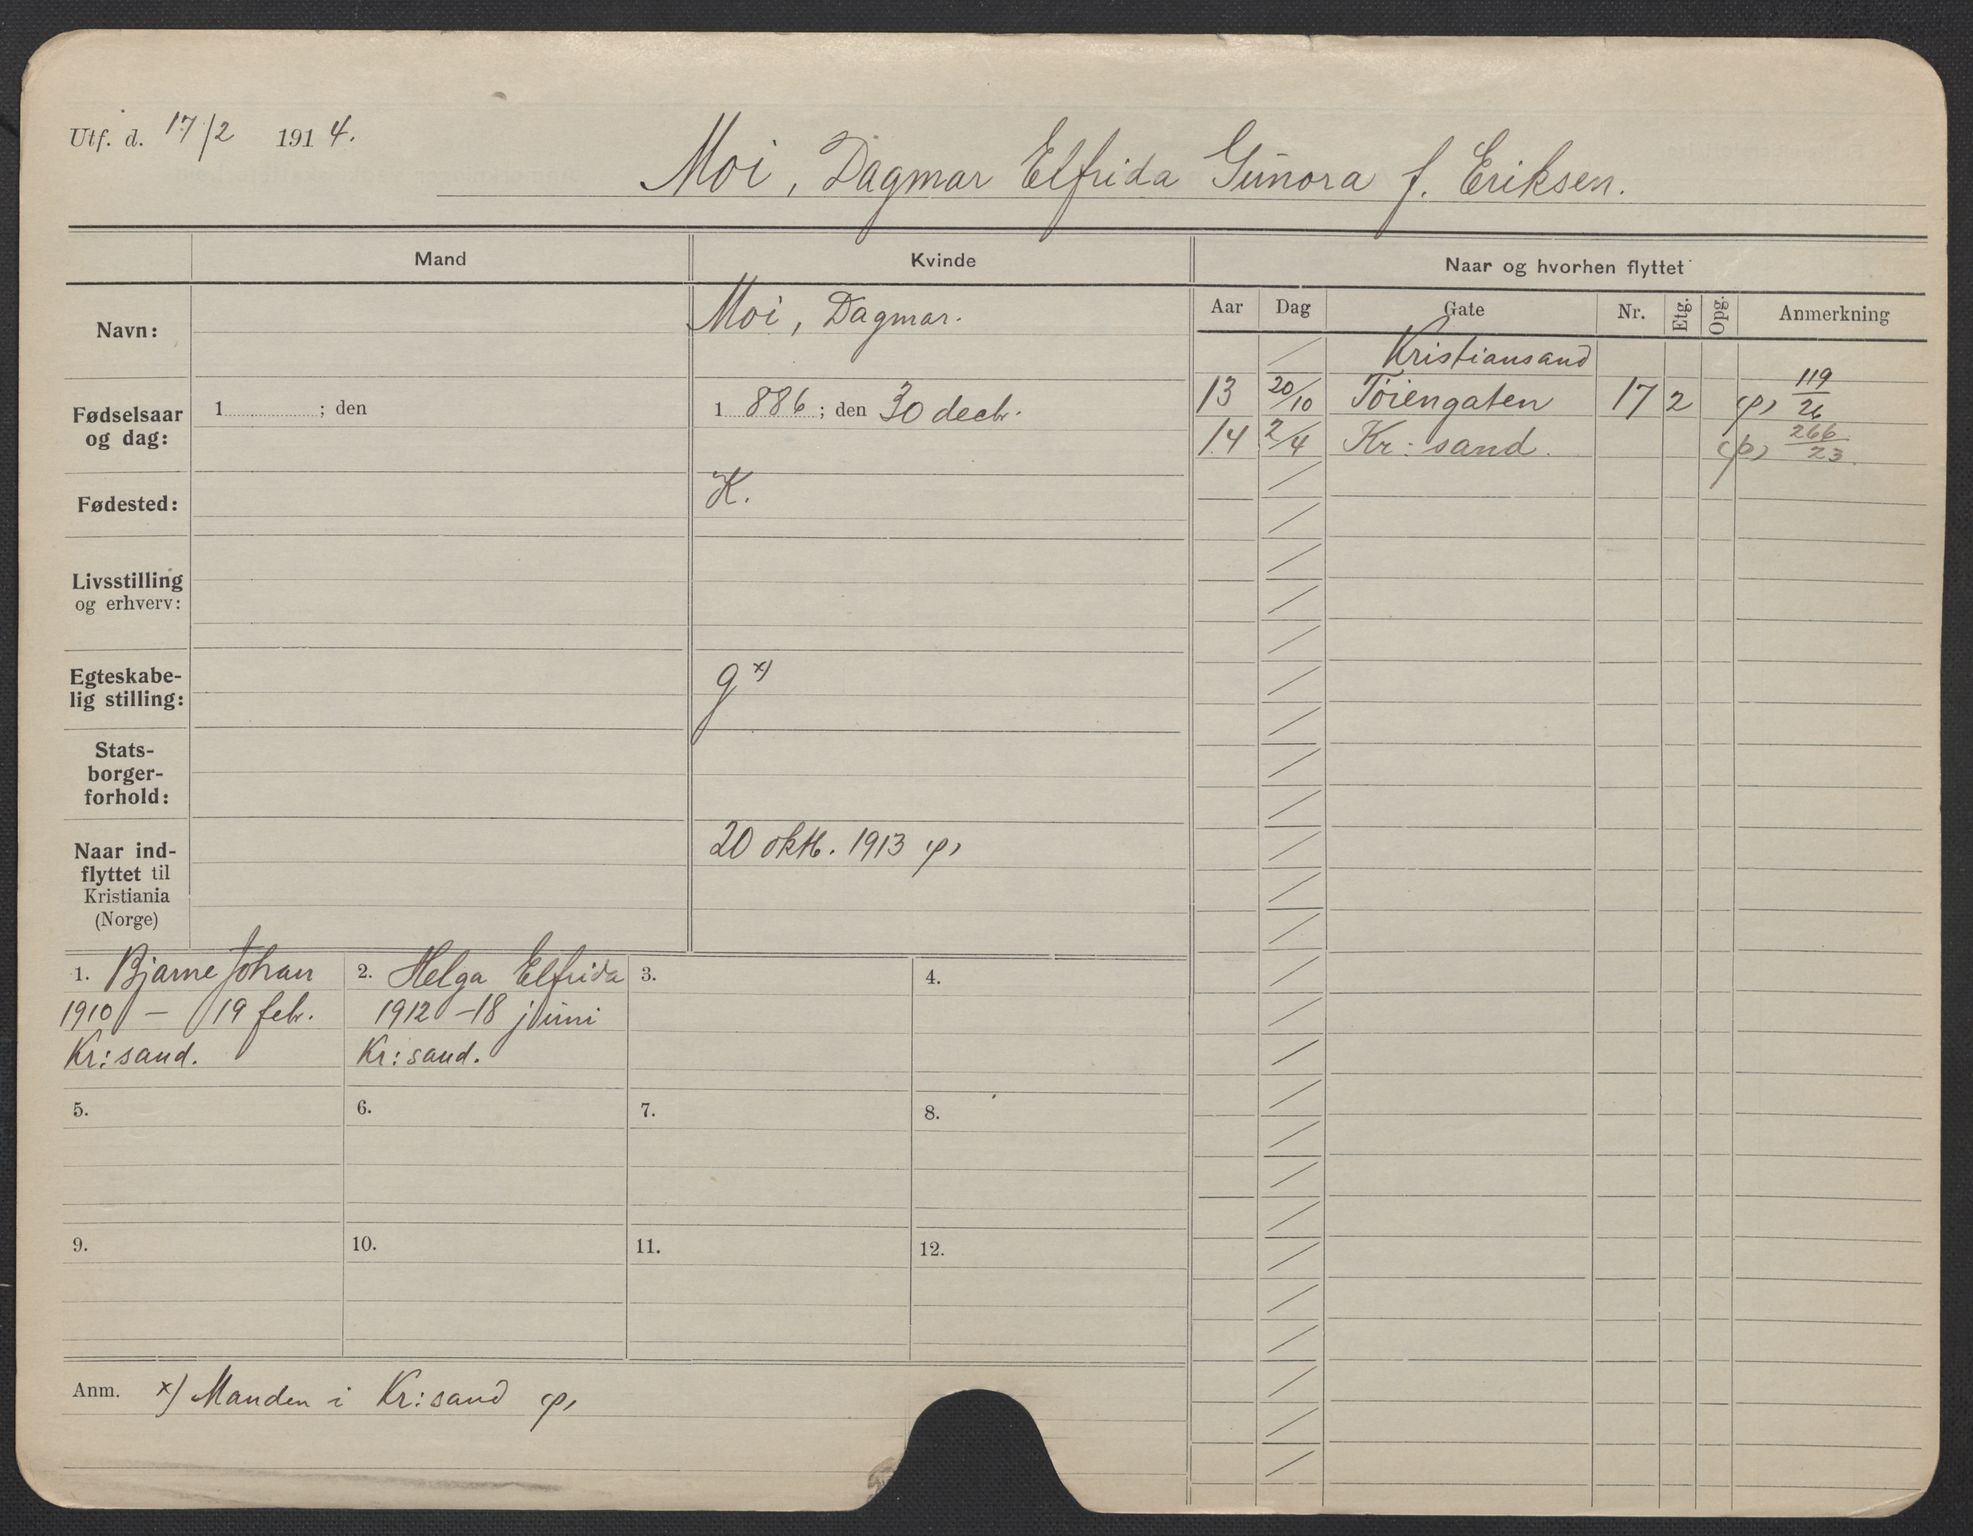 Utf. d. 17/2 1914.
Moi, Dagmar Elfrida Gunora f. Eriksen.
Mand Kvinde Naar og hvorhen flyttet
Aar Dag Gate Nr. Etg. Opg. Anmerkning
Navn: Moi, Dagmar.
Kristiansand
13 20/10 Töiengaten 17 2 119/26
14 2/4 Kr: sand. 266/23.
Fødselsaar
og dag:
1 ; den
1 886 ; den 30 decbr.
Fødested: K.
Livsstilling
og erhverv:
Egteskabe-
lig stilling:
g x)
Stats-
borger-
forhold:
Naar ind-
flyttet til
Kristiania
(Norge)
20 oktb. 1913
1. Bjarne Johan
1910 – 19 febr.
Kr: sand.
2. Helga Elfrida
1912 – 18 juni
Kr: sand.
3.
4.
5.
6.
7.
8.
9.
10.
11.
12.
Anm. x) Manden i Kr: sand